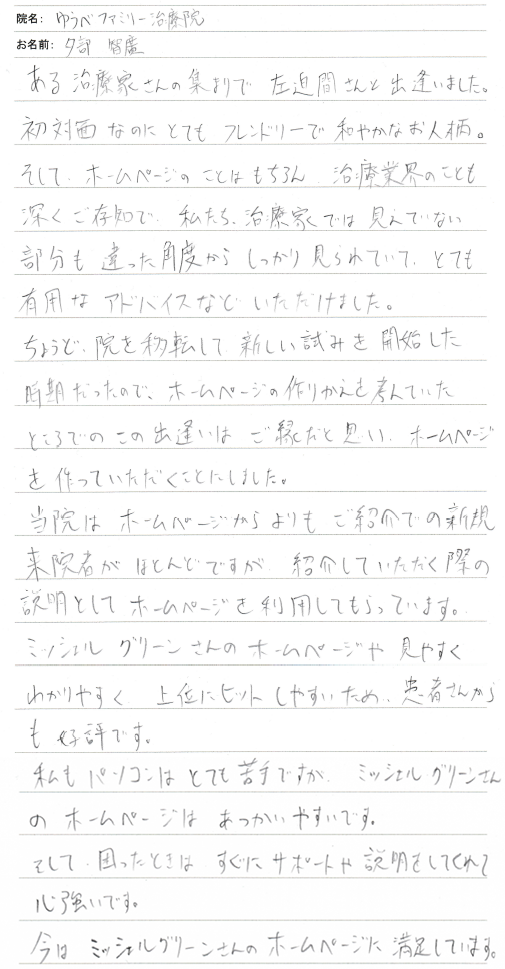 院名: ゆうべファミリー治療院
お名前: 夕部 智廣
ある治療家さんの集まりで 左迫間さんと出逢いました。
初対面なのにとても フレンドリーで和やかなお人柄。
そして、ホームページのことはもちろん 治療業界のことも
深くご存知で、私たち、治療家では見えていない
部分も違った角度からしっかり見られていて、とても
有用なアドバイスなどいただけました。
ちょうど、院を移転して 新しい試みを開始した
時期だったので、ホームページの作りかえを考えていた
ところでのこの出逢いは ご縁だと思い、ホームページ
を作っていただくことにしました。
当院は ホームページからよりも ご紹介での新規
来院者がほとんどですが 紹介していただく際の
説明としてホームページを利用してもらっています。
ミッシェル グリーンさんのホームページや 見やすく
わかりやすく 上位にヒットしやすいため、患者さんから
も好評です。
私もパソコンはとても苦手ですが、ミッシェルグリーンさん
のホームページは あつかいやすいです。
そして、困ったときは すぐにサポートや説明をしてくれて
心強いです。
今は ミッシェルグリーンさんのホームページに満足しています。